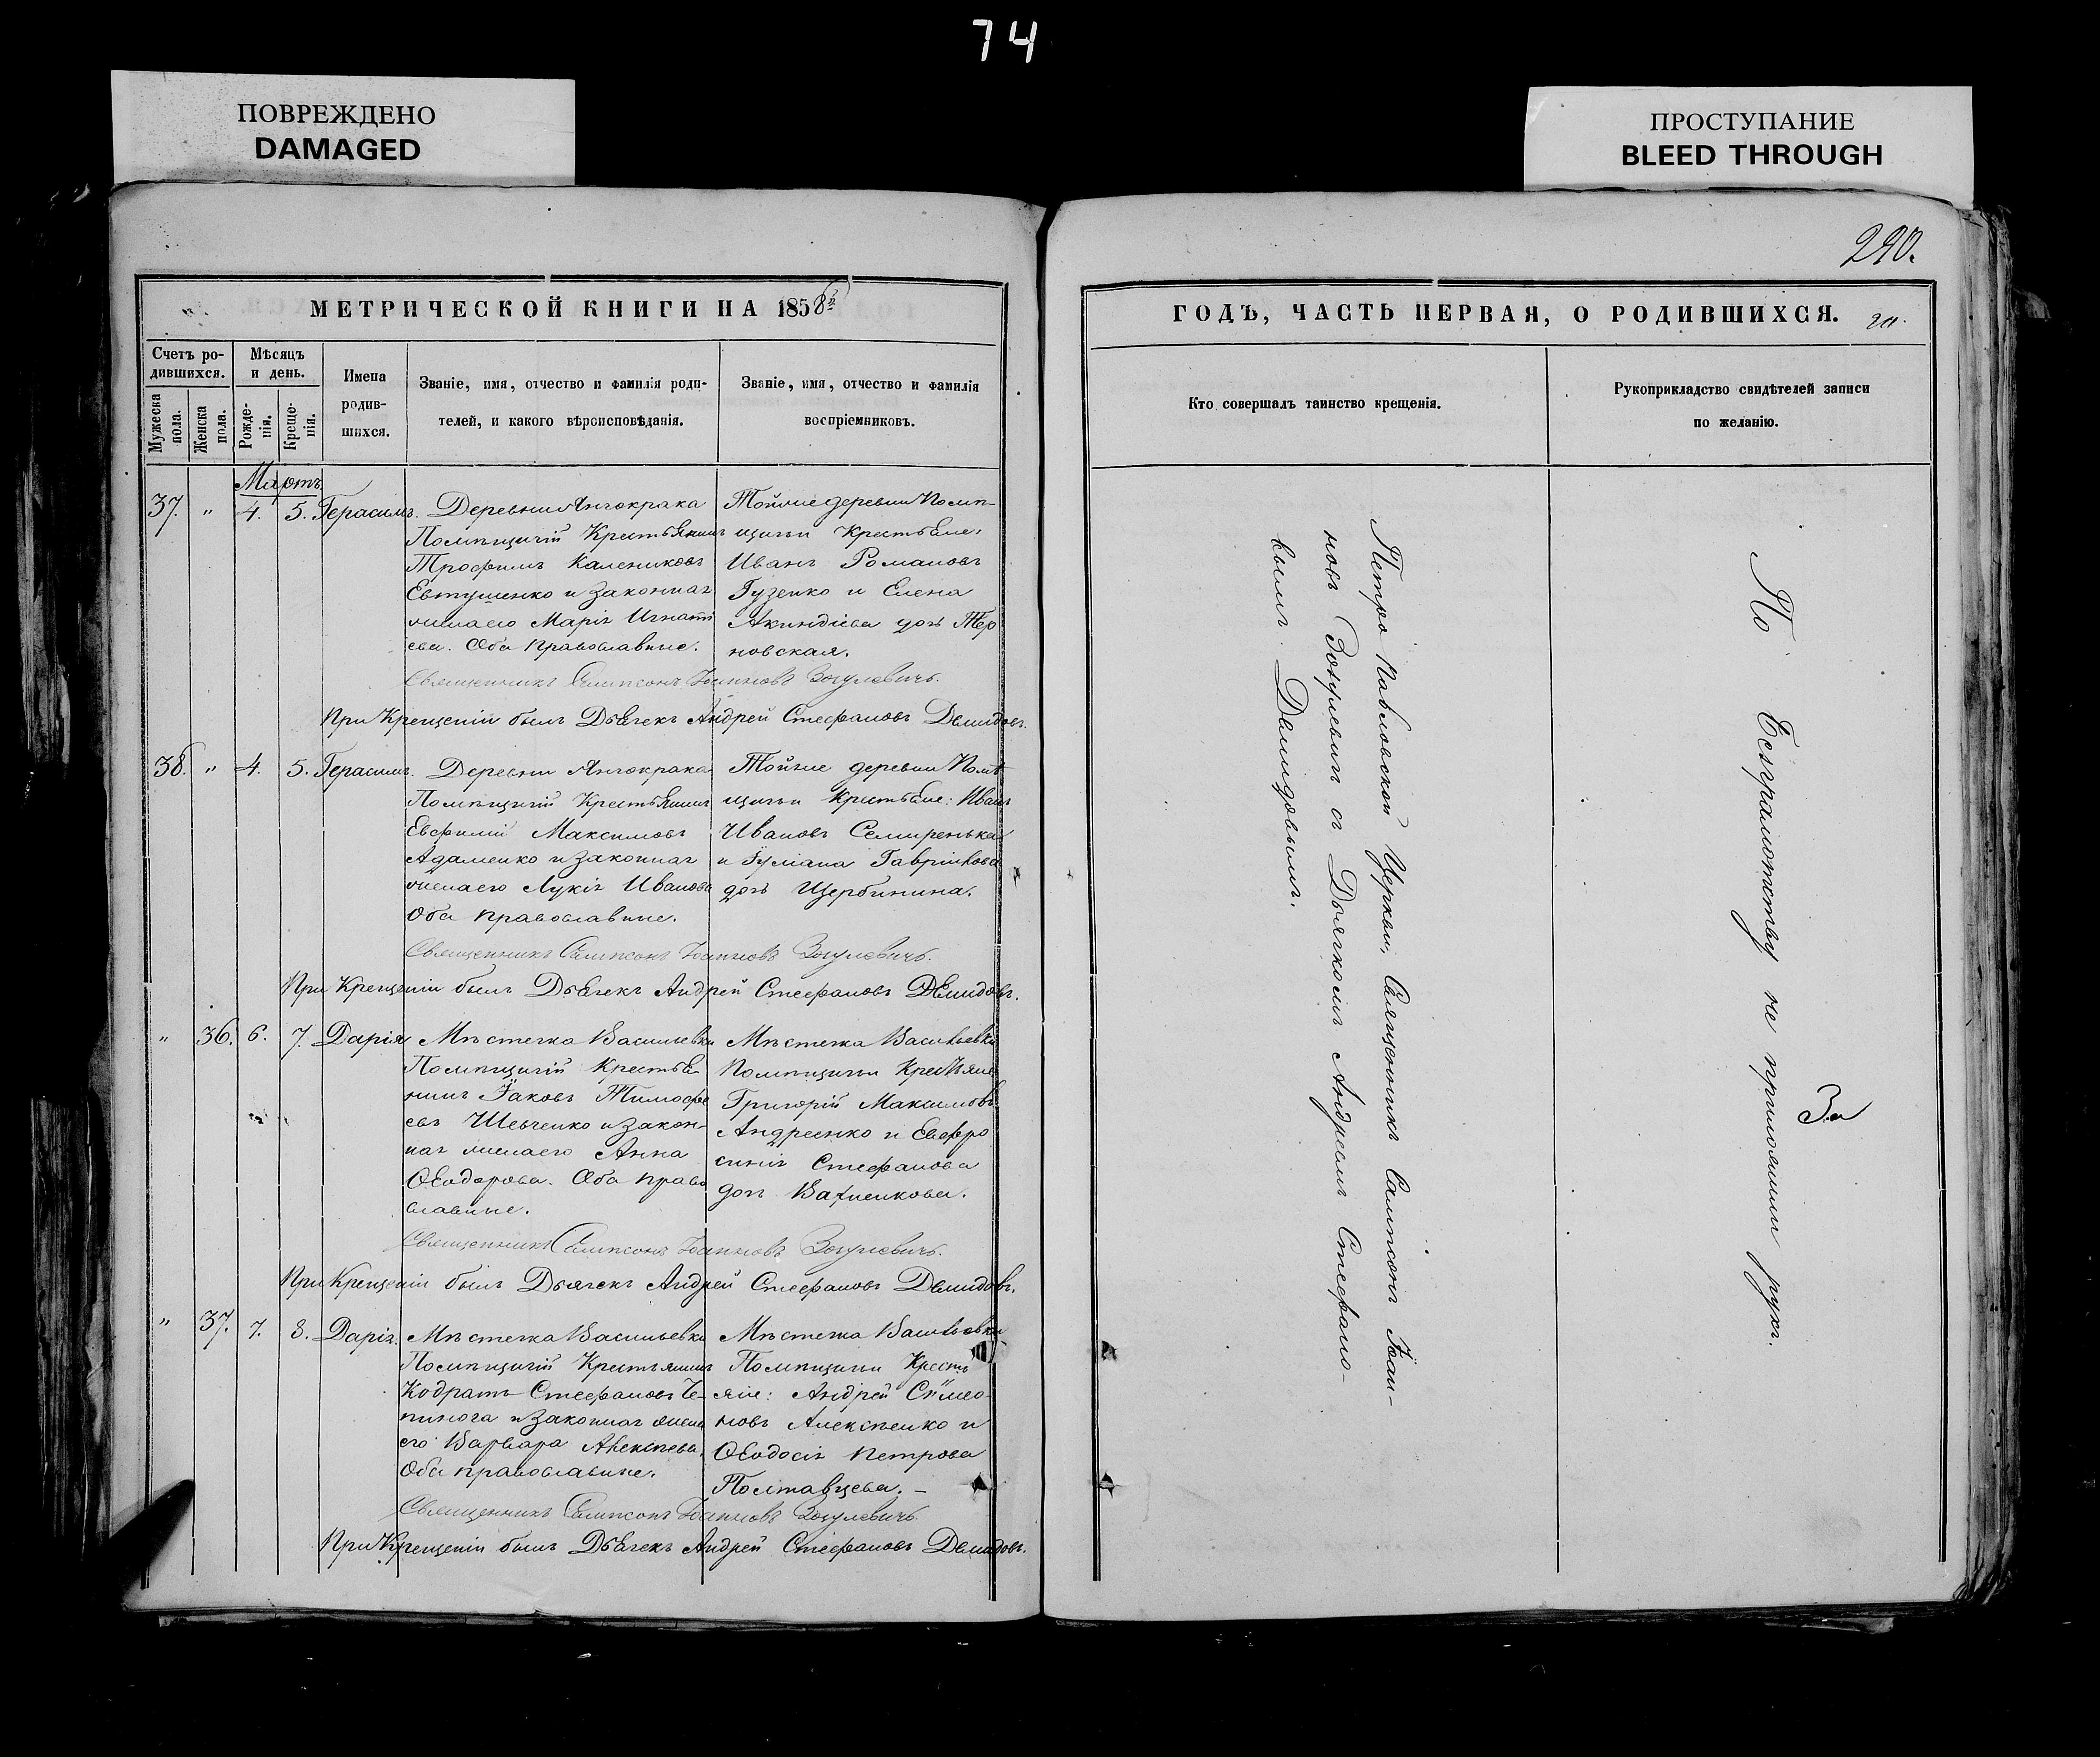 74
ПОВРЕЖДЕНО
DAMAGED
ПРОСТУПАНИЕ
BLEED THROUGH
МЕТРИЧЕСКОЙ КНИГИ НА 1858
Счетъ ро-
дившихся.
Мужеска
пола.
Женска
пола.
Мѣсяцъ
и день.
Рожде-
нія.
Креще-
нія.
Имена
родив-
шихся.
Званіе, имя, отчество и фамилія роди-
телей, и какого вѣроисповѣданія.
Званіе, имя, отчество и фамилія
воспріемниковъ.
Мартъ
37. " 4. 5. Герасимъ.
Деревни
Помѣщичій Крестьянинъ
Трофимъ Калениковъ
Евтушенко и законная
жена его Марія Игнаті
ева. Оба православные.
Тойже деревни Помѣ-
щичьи Крестьяне:
Иванъ Романовъ
Гузенко и Елена
Акиндіева дочь Тер
новская.
Священникъ Сампсонъ Іоанновъ Зогулевичъ.
При Крещеніи былъ Дьячекъ Андрей Стефановъ Демидовъ.
38. " 4. 5. Герасимъ.
Деревни
Помѣщичій Крестьянинъ
Евфимій Максимовъ
Адаменко и законная
жена его Лукія Иванова
Оба православные.
Тойже деревни Помѣ
щичьи Крестьяне: Иванъ
Ивановъ Семиренька
и Іуліана Гавріилова
дочь Щербинина.
Священникъ Сампсонъ Іоанновъ Зогулевичъ.
При Крещеніи былъ Дьячекъ Андрей Стефановъ Демидовъ.
" 36. 6. 7. Дарія
Мѣстечка Васильевки
Помѣщичій Крестья-
нинъ Іаковъ Тимофе
евъ Шевченко и закон-
ная жена его Анна
Ѳеодорова. Оба право
славные.
Мѣстечка Васильевки
Помѣщичьи Крестьяне
Григорій Максимовъ
Андреенко и Евфро
синія Стефанова
дочь
Священникъ Сампсонъ Іоанновъ Зогулевичъ.
При Крещеніи былъ Дьячекъ Андрей Стефановъ Демидовъ.
" 37. 7. 8. Дарія.
Мѣстечка Васильевки
Помѣщичій Крестьянинъ
Кодратъ Стефановъ Че-
пинога и законная жена
его Варвара Алексѣева.
Оба православные.
Мѣстечка Васильевки
Помѣщичьи Кресть
яне: Андрей Сѵмео-
новъ Алексѣенко и
Ѳеодосія Петрова
Полтавцева. –
Священникъ Сампсонъ Іоанновъ Зогулевичъ.
При Крещеніи былъ Дьячекъ Андрей Стефановъ Демидовъ.
290.
ГОДЪ, ЧАСТЬ ПЕРВАЯ, О РОДИВШИХСЯ.
Кто совершалъ таинство крещенія.
Рукоприкладство свидѣтелей записи
по желанію.
Петро Павловской Церкви, Священникъ Сампсонъ Іоан-
новъ Зогулевичъ съ Дьячкомъ Андреемъ Стефано-
вымъ Демидовымъ.
По безграмотству не приложили рукъ.
За